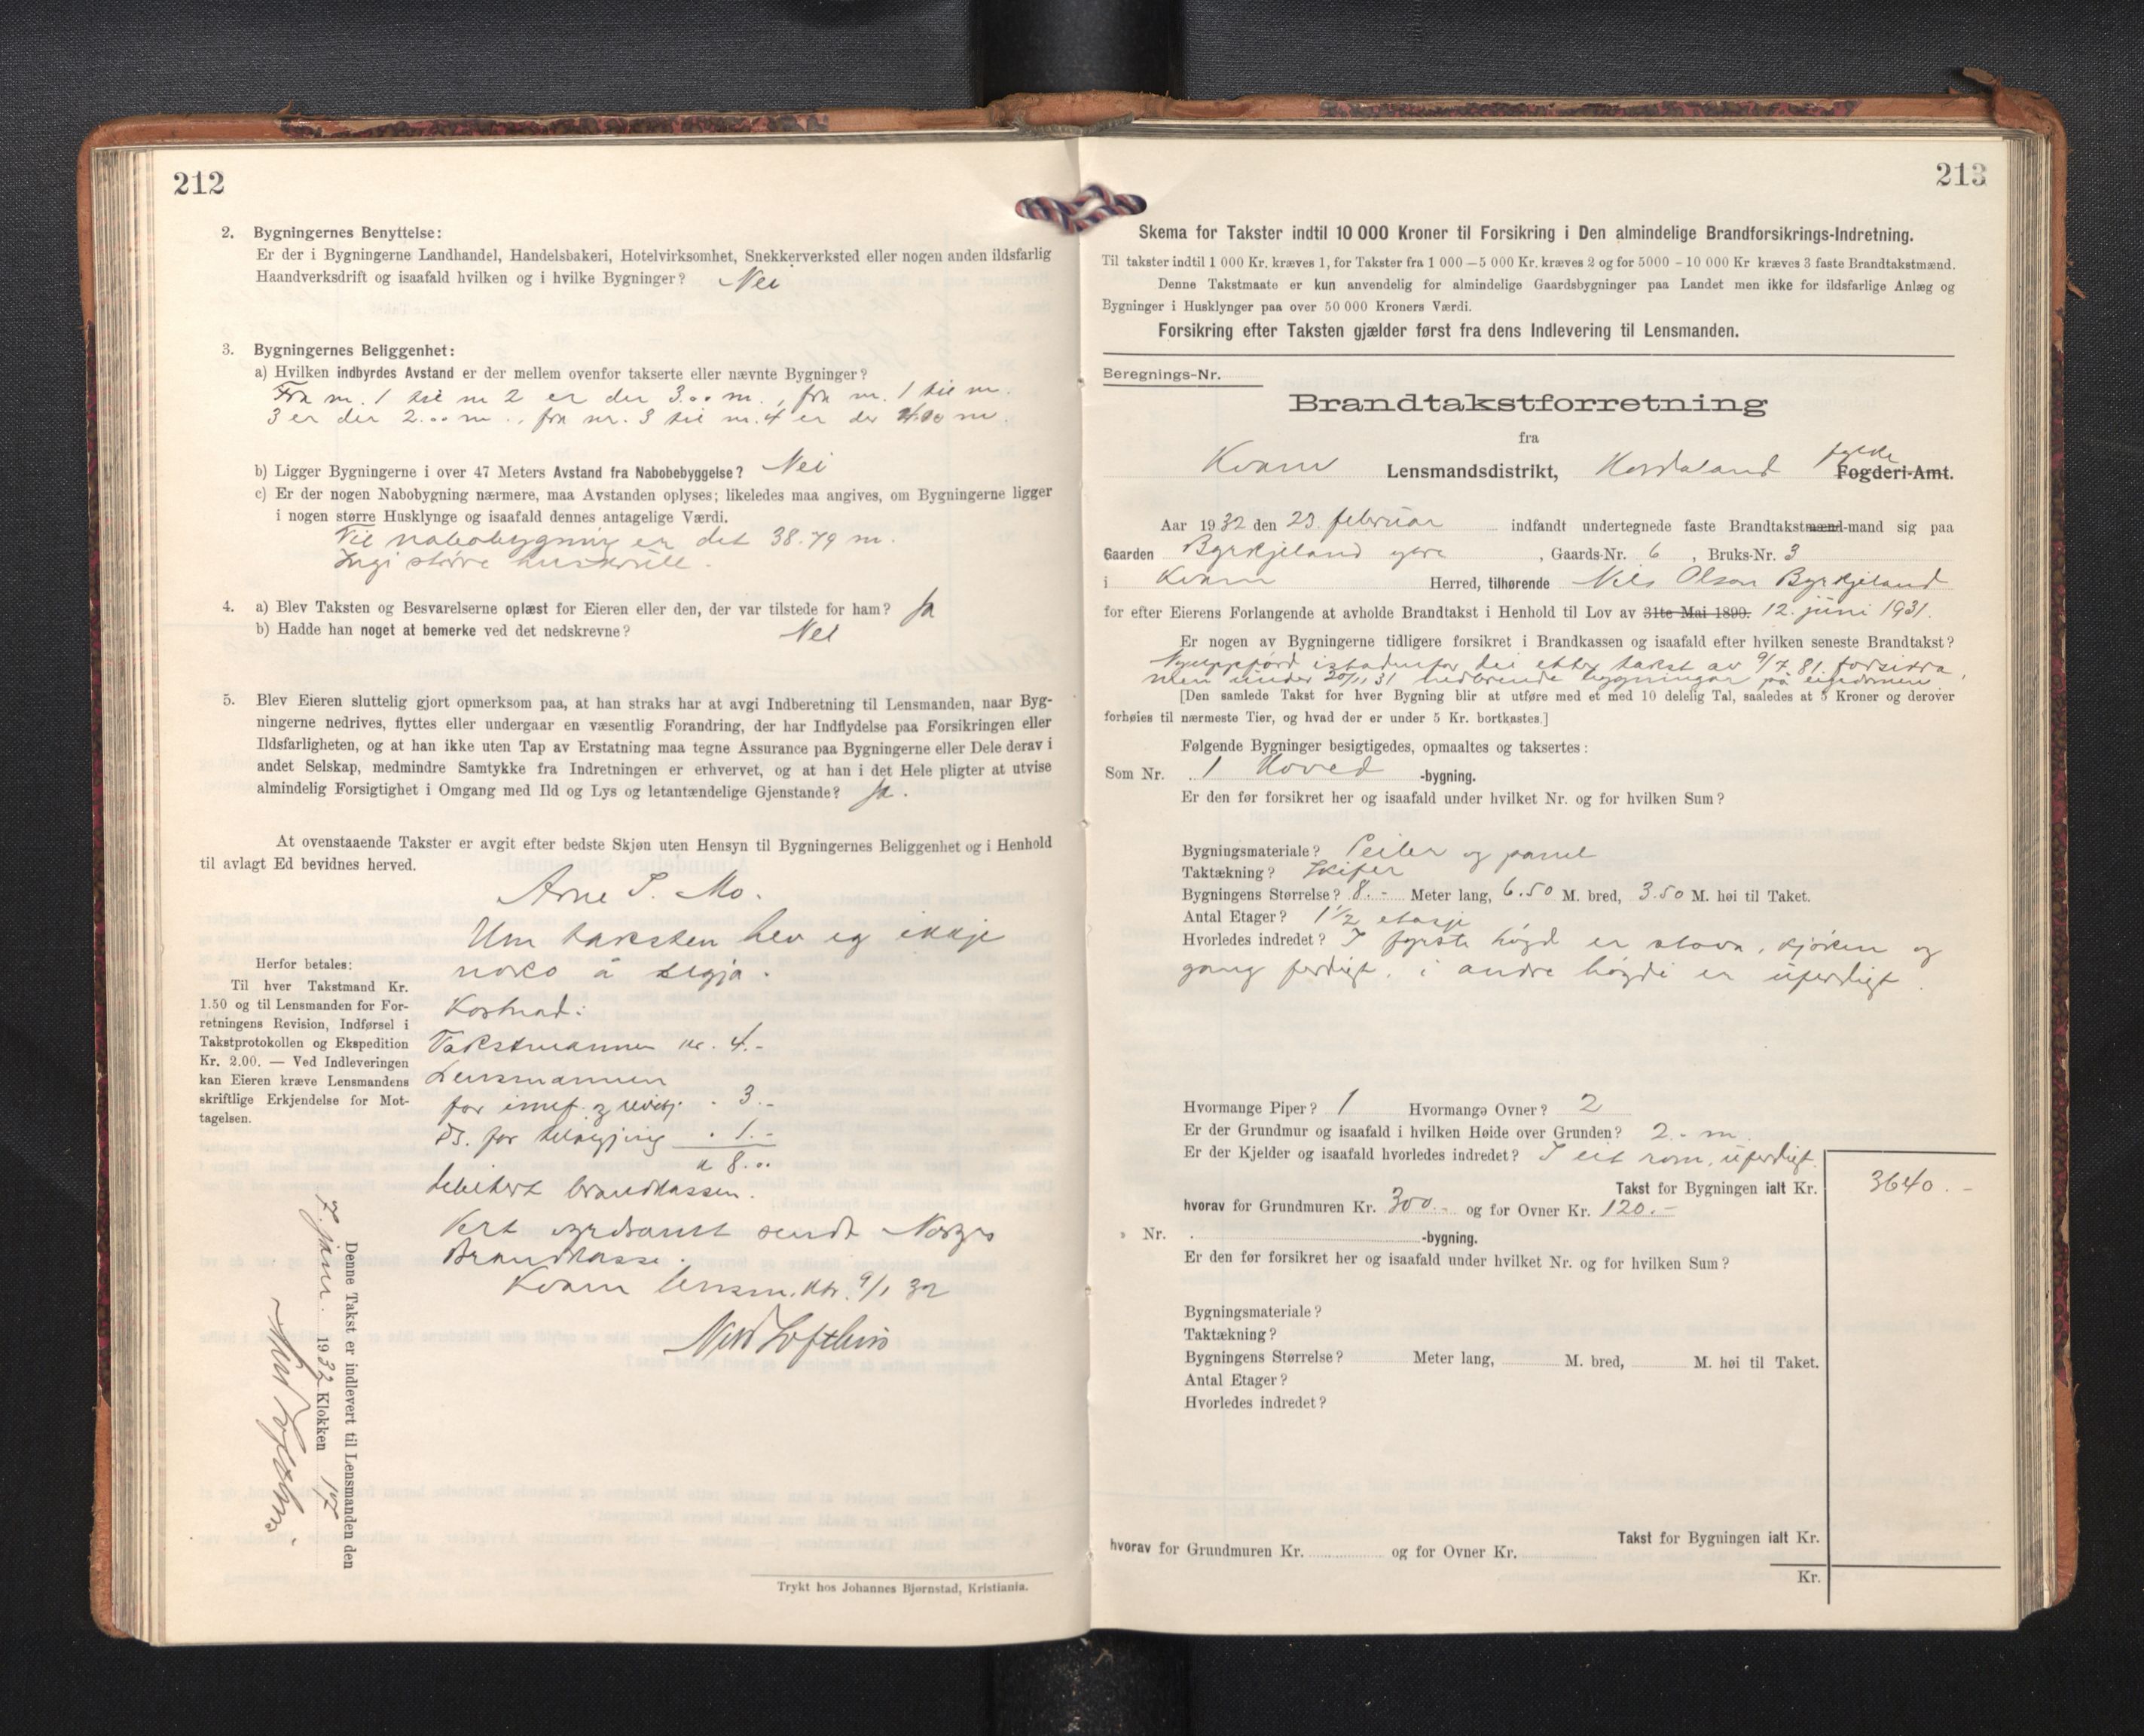 212
2. Bygningernes Benyttelse:
Er der i Bygningerne Landhandel, Handelsbakeri, Hotelvirksomhet, Snekkerverksted eller nogen anden ildsfarlig
Haandverksdrift og isaafald hvilken og i hvilke Bygninger? Nei
3. Bygningernes Beliggenhet:
a) Hvilken indbyrdes Avstand er der mellem ovenfor takserte eller nævnte Bygninger?
Fra nr. 1 til nr 2 er der 3.00 m., fra nr. 1 til nr.
3 er der 2.00 m., fra nr. 3 til nr. 4 er der m.
b) Ligger Bygningerne i over 47 Meters Avstand fra Nabobebyggelse? Nei
c) Er der nogen Nabobygning nærmere, maa Avstanden oplyses; likeledes maa angives, om Bygningerne ligger
i nogen større Husklynge og isaafald dennes antagelige Værdi.
Til nabobygning er det 38.79 m.
Ingi større
4. a) Blev Taksten og Besvarelserne oplæst for Eieren eller den, der var tilstede for ham? Ja
b) Hadde han noget at bemerke ved det nedskrevne? Nei
5. Blev Eieren sluttelig gjort opmerksom paa, at han straks har at avgi Indberetning til Lensmanden, naar Byg-
ningerne nedrives, flyttes eller undergaar en væsentlig Forandring, der har Indflydelse paa Forsikringen eller
Ildsfarligheten, og at han ikke uten Tap av Erstatning maa tegne Assurance paa Bygningerne eller Dele derav i
andet Selskap, medmindre Samtykke fra Indretningen er erhvervet, og at han i det Hele pligter at utvise
almindelig Forsigtighet i Omgang med Ild og Lys og letantændelige Gjenstande? Ja.
At ovenstaaende Takster er avgit efter bedste Skjøn uten Hensyn til Bygningernes Beliggenhet og i Henhold
til avlagt Ed bevidnes herved.
Arne S. Mo.
Um taksten hev eg ikkje
noko å segja.
Herfor betales:
Til hver Takstmand Kr.
1.50 og til Lensmanden for For-
retningens Revision, Indførsel i
Takstprotokollen og Ekspedition
Kr. 2.00. — Ved Indleveringen
kan Eieren kræve Lensmandens
skriftlige Erkjendelse for Mot-
tagelsen.
Kostnad:
Takstmannen kr. 4.-
Lensmannen
for innf. og revisj. - 3.-
Ds. for - 1.-
kr 8.00
debitert brandkassen.
Vert vyrdsamt sendt Noregs
Brandkasse.
Kvam lensm.ktr. 9/1 32
Nils Lofthus
Denne Takst er indlevert til Lensmanden den
7. jánr. 1932 Klokken 17
Nils Lofthus.
Trykt hos Johannes Bjørnstad, Kristiania.
213
Skema for Takster indtil 10 000 Kroner til Forsikring i Den almindelige Brandforsikrings-Indretning.
Til takster indtil 1 000 Kr. kræves 1, for Takster fra 1 000 — 5 000 Kr. kræves 2 og for 5000 - 10 000 Kr kræves 3 faste Brandtakstmænd.
Denne Takstmaate er kun anvendelig for almindelige Gaardsbygninger paa Landet men ikke for ildsfarlige Anlæg og
Bygninger i Husklynger paa over 50 000 Kroners Værdi.
Forsikring efter Taksten gjælder først fra dens Indlevering til Lensmanden.
Beregnings-Nr.
Brandtakstforretning
fra
Kvam Lensmandsdistrikt, Hordaland fylke Fogderi-Amt.
Aar 1932 den 23. februar indfandt undertegnede faste Brandtakstmænd-mand sig paa
Gaarden Byrkjeland ytre, Gaards-Nr. 6, Bruks-Nr. 3
i Kvam Herred, tilhørende Nils Olson Byrkjeland
for efter Eierens Forlangende at avholde Brandtakst i Henhold til Lov av 31te Mai 1899. 12. juni 1931.
Er nogen av Bygningerne tidligere forsikret i Brandkassen og isaafald efter hvilken seneste Brandtakst?
Nyuppførd istadenfor dei etter takst av 9/7 81. forsikra
men under 20/11 31 nedbrende bygningar på eigedomen.
[Den samlede Takst for hver Bygning blir at utføre med et med 10 delelig Tal, saaledes at 5 Kroner og derover
forhøies til nærmeste Tier, og hvad der er under 5 Kr. bortkastes.]
Følgende Bygninger besigtigedes, opmaaltes og taksertes:
Som Nr. 1 Hoved -bygning.
Er den før forsikret her og isaafald under hvilket Nr. og for hvilken Sum?
Bygningsmateriale? Peiler og panel
Taktækning? Skifer
Bygningens Størrelse? 8.- Meter lang, 6.50 M. bred, 3.50 M. høi til Taket.
Antal Etager? 1 1/2 etasje
Hvorledes indredet? I fyrste høgd er stova, kjøken og
gang ferdigt, i andre høgdi er uferdigt.
Hvormange Piper? 1 Hvormange Ovner? 2
Er der Grundmur og isaafald i hvilken Høide over Grunden? 2.- m.
Er der Kjelder og isaafald hvorledes indredet? I eit rom, uferdigt.
Takst for Bygningen ialt Kr. 3640.-
hvorav for Grundmuren Kr. 300.- og for Ovner Kr. 120.-
» Nr. -bygning.
Er den før forsikret her og isaafald under hvilket Nr. og for hvilken Sum?
Bygningsmateriale?
Taktækning?
Bygningens Størrelse? Meter lang, M. bred, M. høi til Taket.
Antal Etager?
Hvorledes indredet?
Takst for Bygningen ialt Kr.
hvorav for Grundmuren Kr. og for Ovner Kr.
Kr.